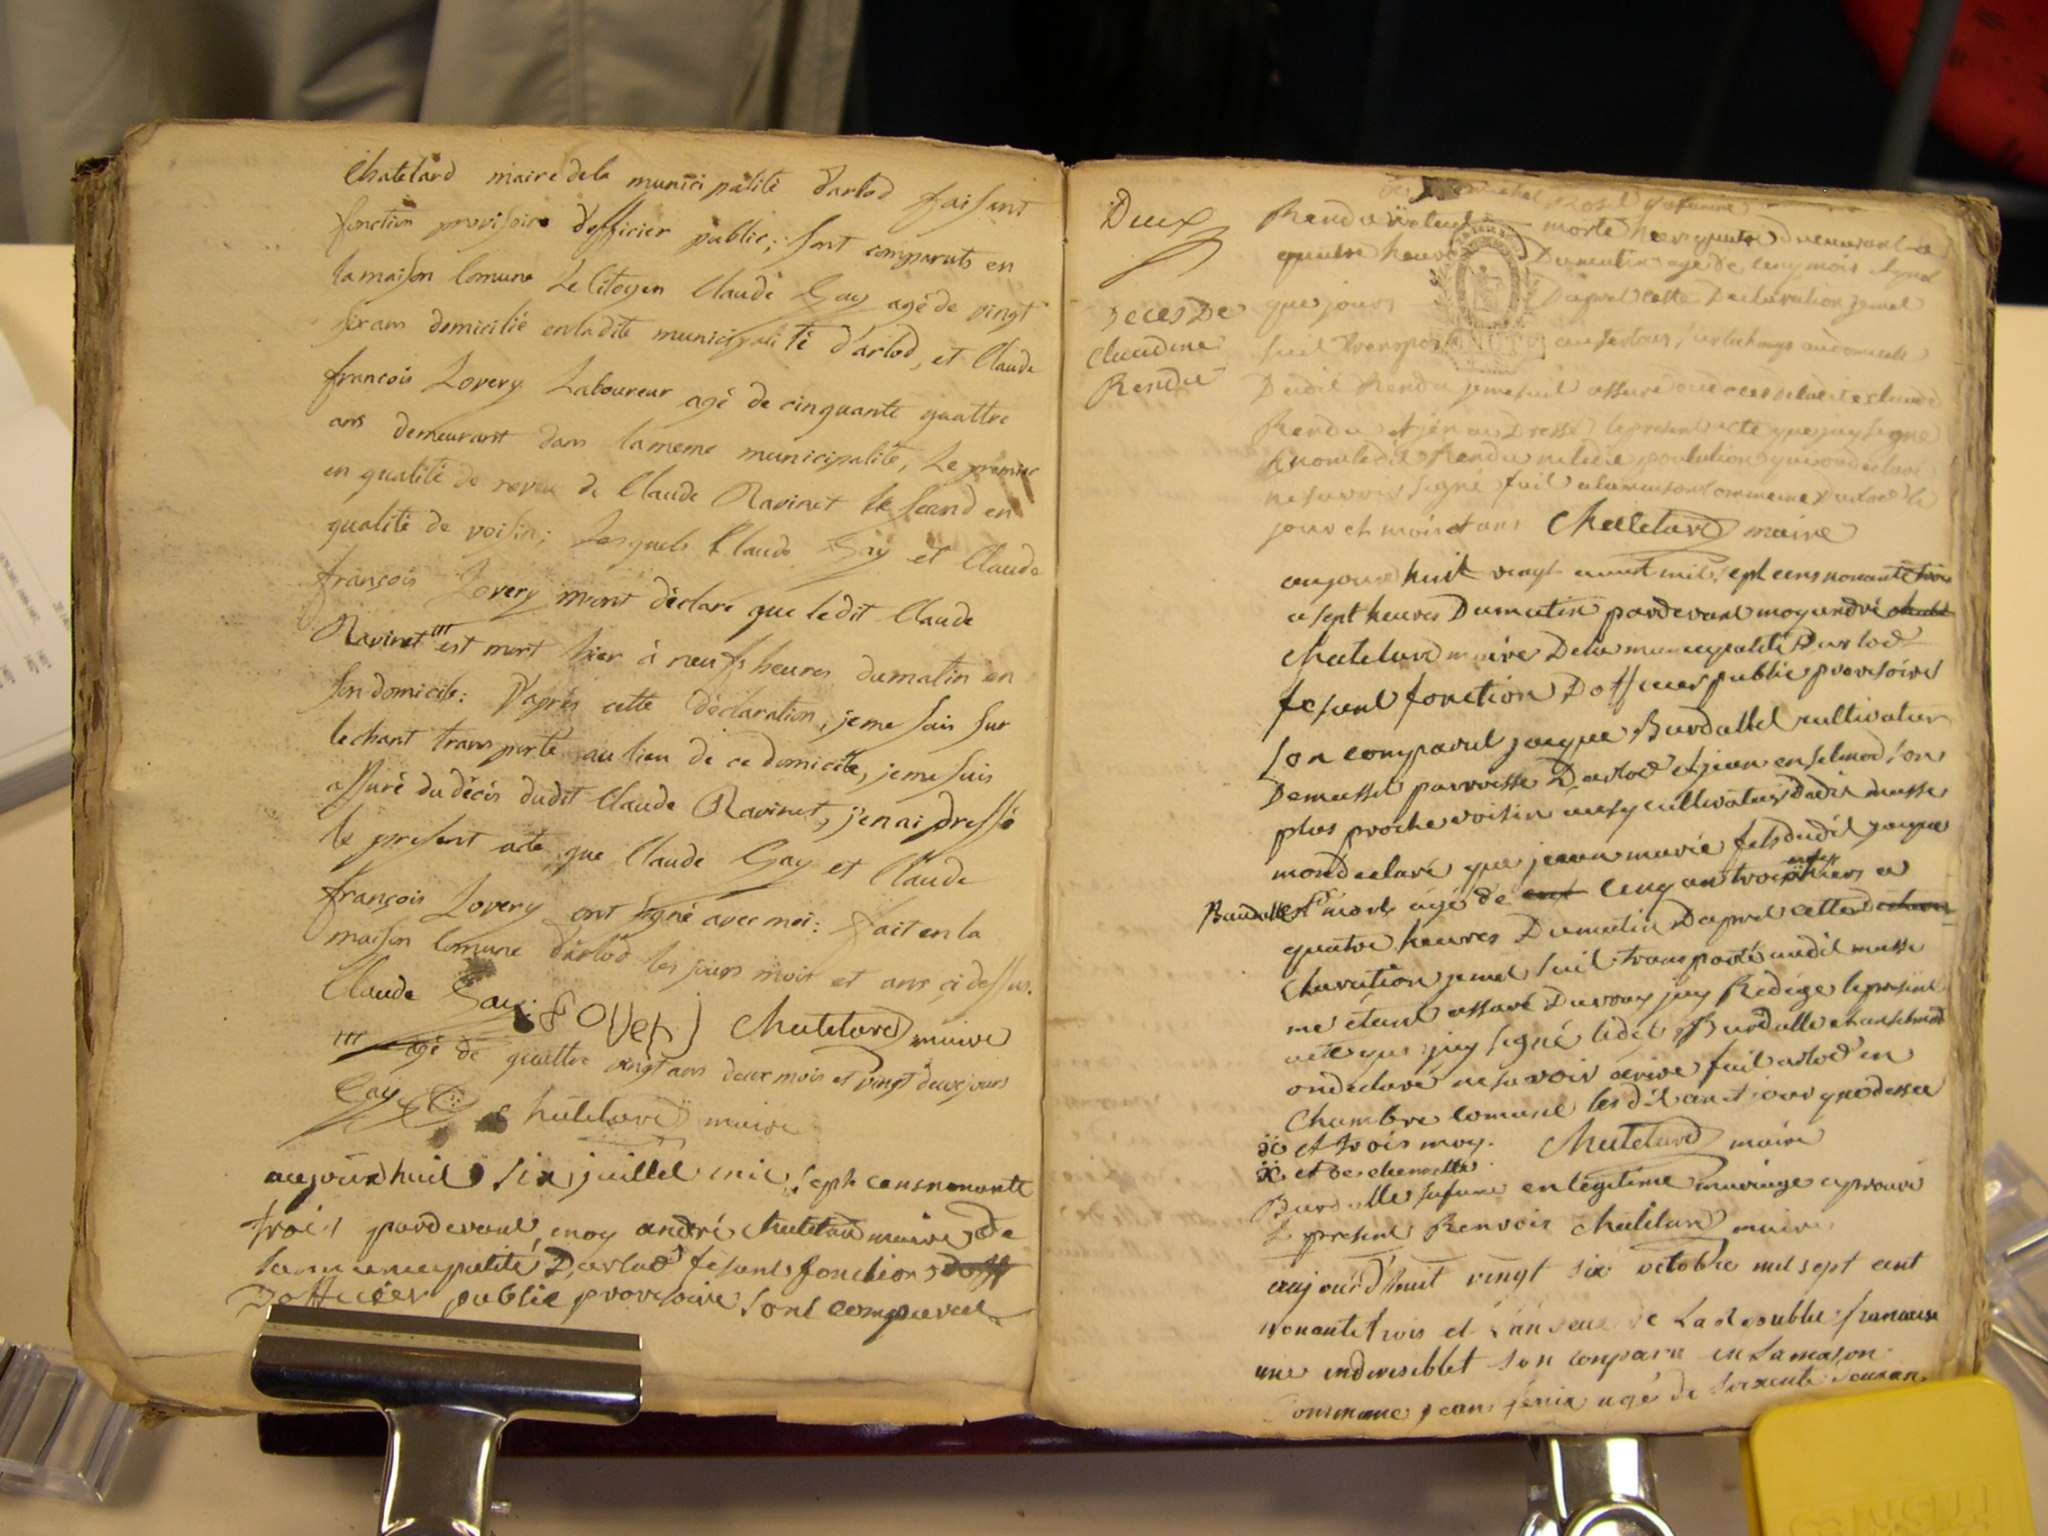 Chatelard maire dela municipalité d'arlod faisant
fonction provisoire d'officier public; sont comparuts en
la maison Comune Le Citoyen Claude Gay agé de vingt
six ans domicilié en ladite municipalité d'arlod, et Claude
françois Lovery Laboureur agé de cinquante quattre
ans demeurant dans la meme municipalité, Le premier
en qualité de neveu de Claude Ravinet le second en
qualité de voisin; Lesquels Claude Gay et Claude
françois Lovery m'ont déclaré que ledit Claude
Ravinet est mort hier à neufs heures dumatin en
son domicile: D'après cette déclaration, je me suis sur
le chant transporté au lieu de ce domicile, je me suis
assuré du décès dudit Claude Ravinet, j'en ai dressé
le present acte que Claude Gay et Claude
françois Lovery ont signé avec moi: fait en la
maison Comune d'arlod les jours mois et ans ci dessus.
Claude Gay: Lovery Chatelard maire
agé de quattre vingt ans deux mois et vingt deux jours
Gay Chatelard maire
aujourdhuit six juillet mil sept cens nonante
trois pardevant moy andré Chatelard maire de
la municipalité Darlod fesant fonction
Dofficier public provisoire sont comparut
Deux
deces De
Claudine
Rendu
Rendu morte
quatre heure Dumatin agé de cinq mois
que jours Daprel cette Declaration jemel
suit transporté
Dudit Rendu jemesuit assuré
Rendu et jen ai Dressé le present acte que jay signé
ne savoir signé fait a la maison commune Darlod le
jour et mois et ans Chatelard maire
aujourdhuit vingt aout mil sept cens nonante trois
a sept heures Dumatin pardevant moy andré
Chatelard maire Dela municipalité Darlod
fesant fonction Dofficier public provisoires
son comparut jaque Burdallet cultivateur
De musset parroisse Darlod et jean enselmod son
plus proche voisin aussy cultivateur dudit musse
mon declaré que jean marie fils dudit jaque
Burdalle est mort agé de cinq an trois a
quatre heures Dumatin Daprel cette de
claration jemel suit transporté audit musse
me étant assuré Du jay Redigé le present
acte que jay signé ledit Burdalle et anselmod
on declaré ne savoir ecrire fait arlod en
Chambre comune les dit an et jour que dessu
et trois moy. Chatelard maire
et de
Burdalle sa fame en legitime mariage aprouvé
le present Renvois Chatelard maire
aujourd'huit vingt six octobre mil sept cent
nonante trois et l'an deux de La republic francaise
une indivisiblet son comparu en la mason
Commune jean agé de soixante